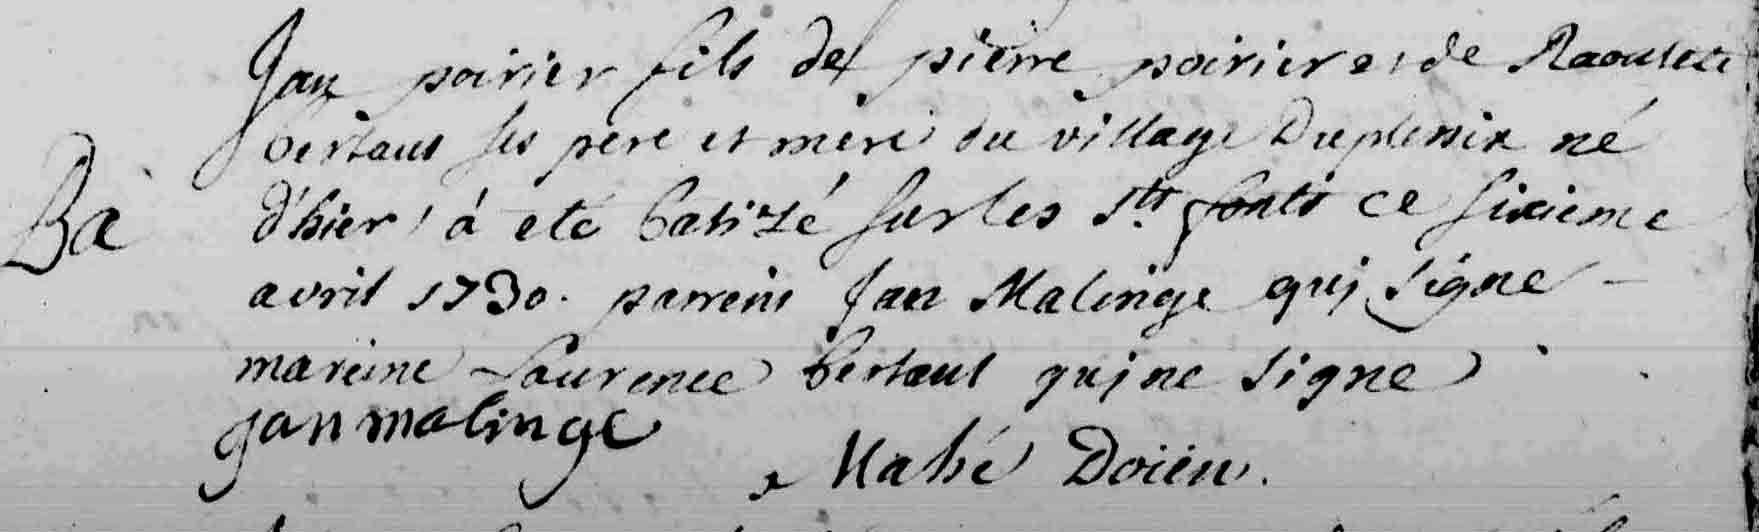 Jan poirier fils de pierre poirier et de Raoulete
bertaut ses pere et mere du village Duplessix né
Ba
d'hier, à eté batizé sur les Sts fonts ce sixieme
avril 1730. parrein Jan Malinge quj signe -
mareine Laurence bertaut quj ne signe
jan malinge
Mahé Doïen.